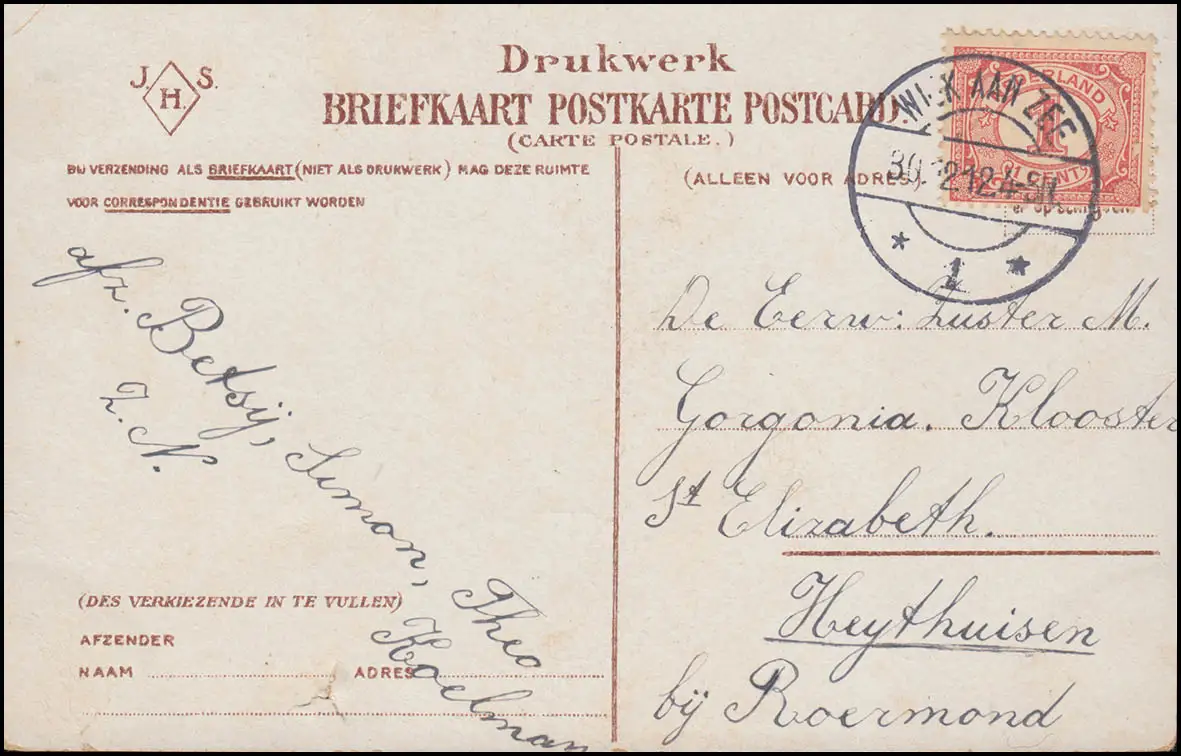 J. H. S.
Drukwerk
BRIEFKAART POSTKARTE POSTCARD.
(CARTE POSTALE.)
BIJ VERZENDING ALS BRIEFKAART (NIET ALS DRUKWERK) MAG DEZE RUIMTE
VOOR CORRESPONDENTIE GEBRUIKT WORDEN
(ALLEEN VOOR ADRES)
NEDERLAND
1
CENT
WIJK AAN ZEE
12 4-5N
1
afz. Betsij, Simon, Theo
Z. N. Koelman
De Eerw: Zuster M.
Gorgonia. Klooster
St Elizabeth.
Heythuisen
bij Roermond
(DES VERKIEZENDE IN TE VULLEN)
AFZENDER
NAAM ADRES